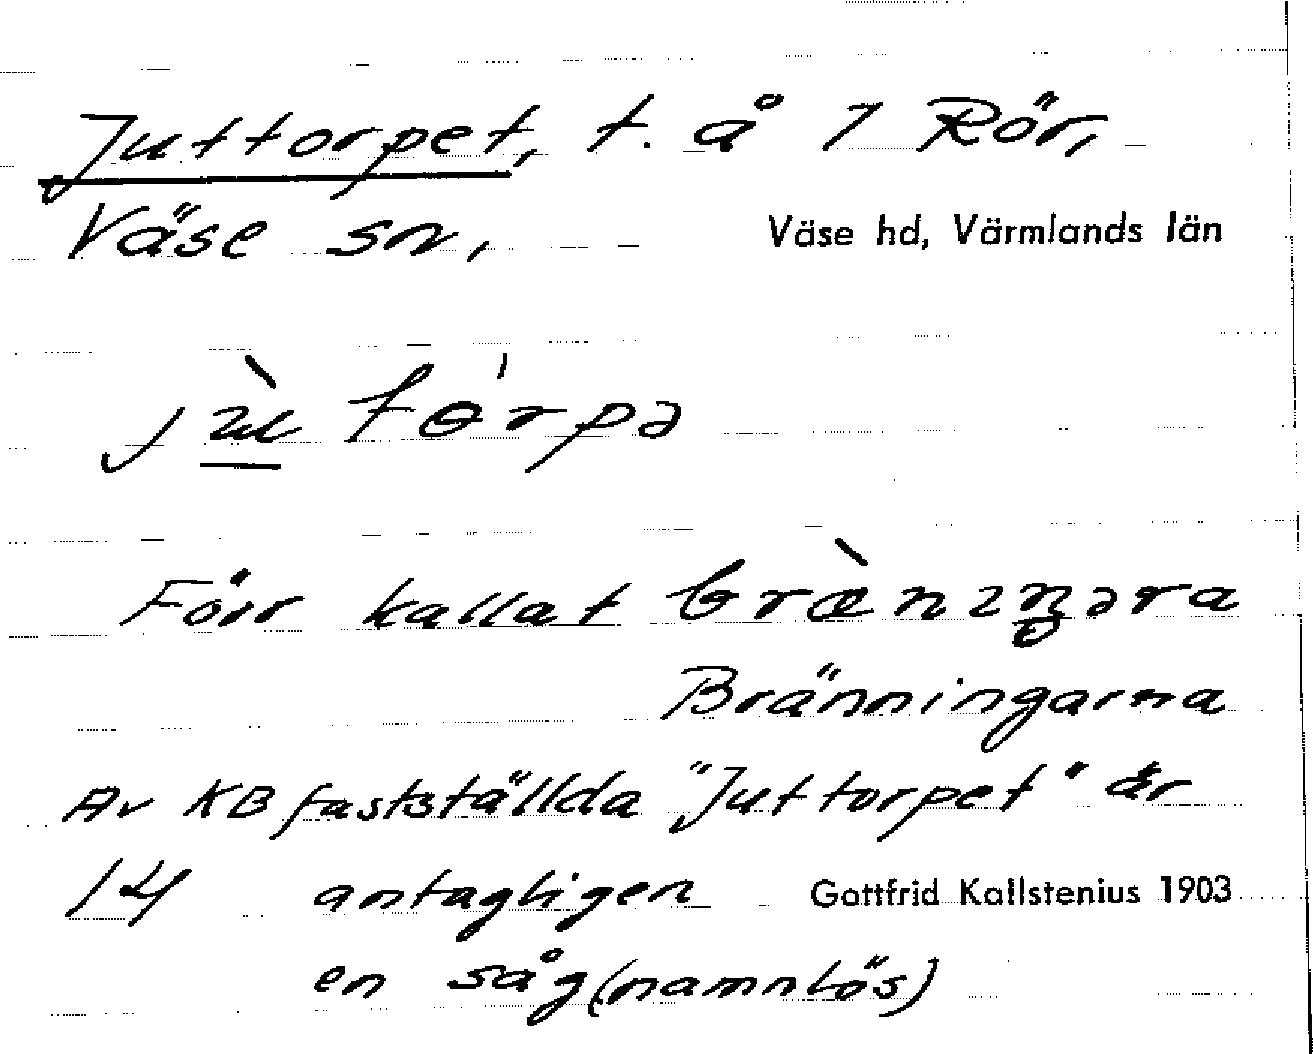 Juttorpet, t. å 1 Rör,
Väse sn, Väse hd, Värmlands län
jù tɵ́rpə
Förr kallat brænıŋəra
Bränningarna
Av KB fastställda "Juttorpet" är
14 antagligen Gottfrid Kallstenius 1903
en såg (namnlös)